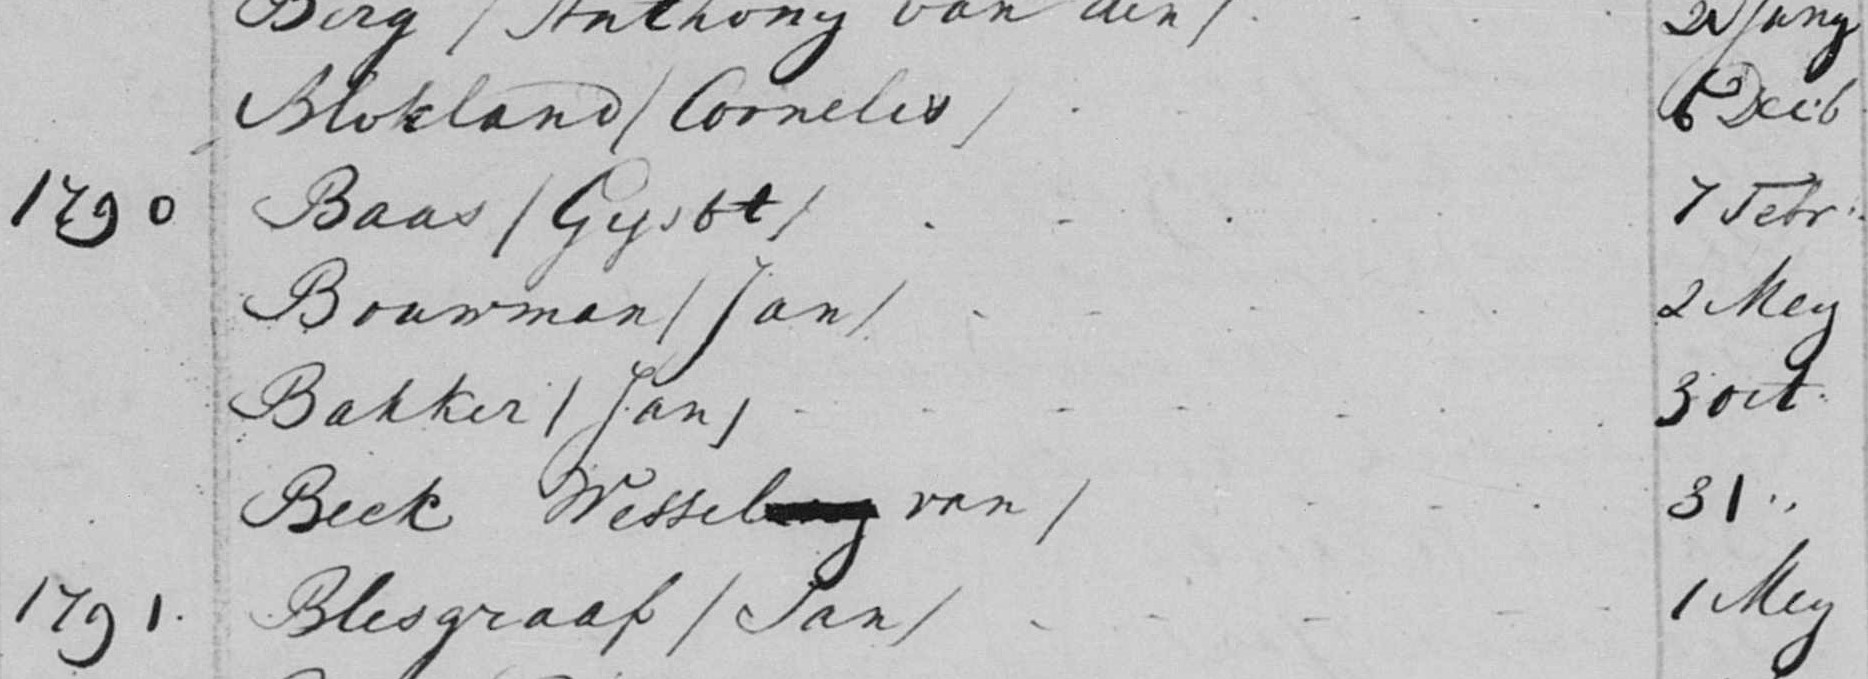 Berg / Anthony van den / Juny
Blokland / Cornelis / 6 Decb
1790 Baas / Gysbt / 7 Febr
Bouwman / Jan / 2 Mey
Bakker / Jan / 3 oct
Beek Wessel van / 31 "
1791. Blesgraaf / Jan / 1 Mey